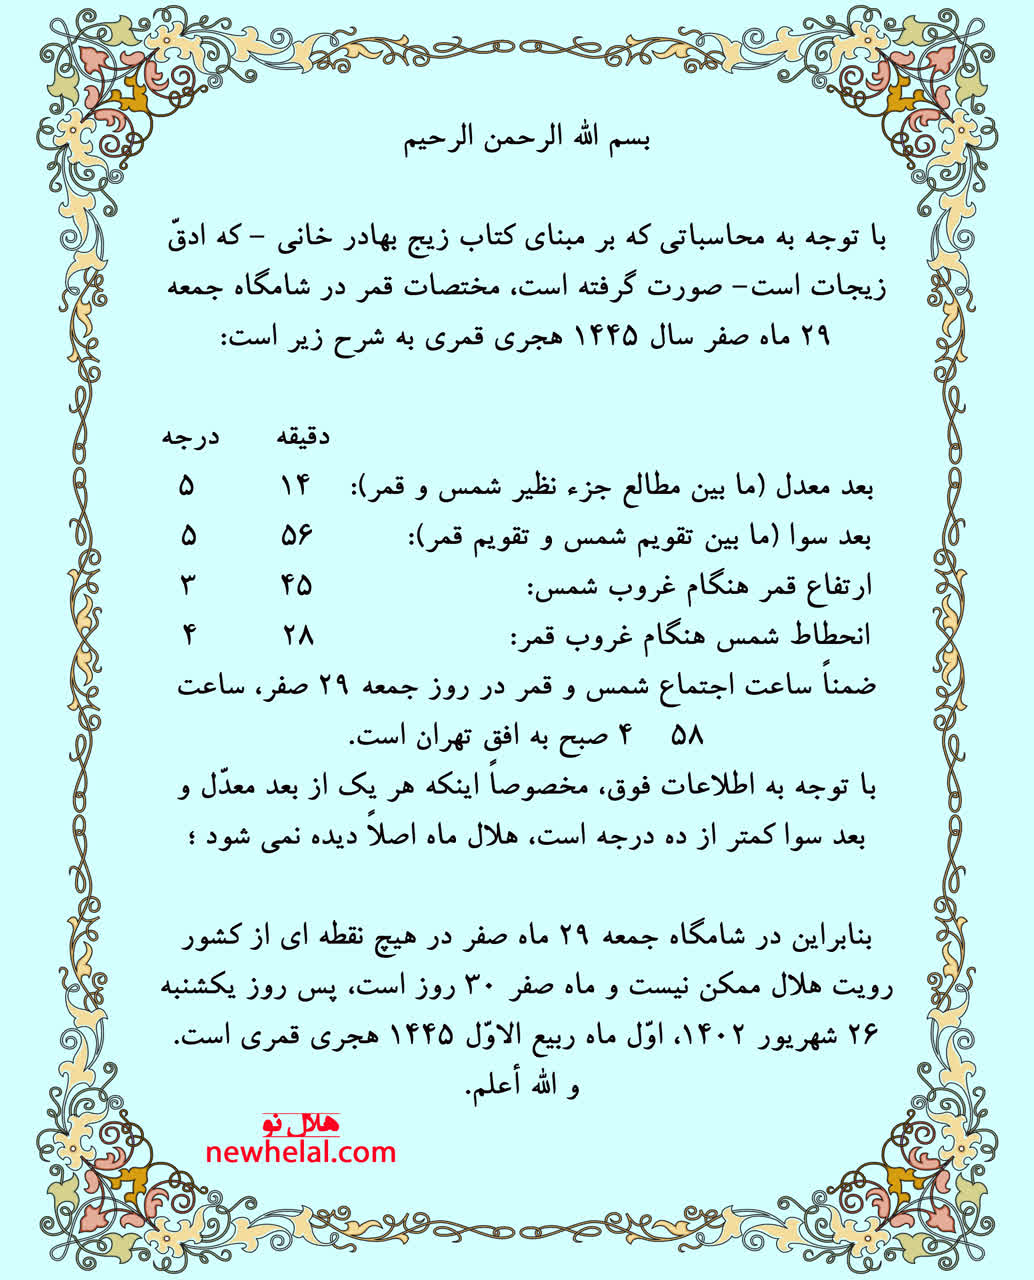 بسم الله الرحمن الرحیم
با توجه به محاسباتی که بر مبنای کتاب زیج بهادر خانی – که ادقّ
زیجات است– صورت گرفته است، مختصات قمر در شامگاه جمعه
۲۹ ماه صفر سال ۱۴۴۵ هجری قمری به شرح زیر است:
دقیقه درجه
بعد معدل (ما بین مطالع جزء نظیر شمس و قمر): ۱۴ ۵
بعد سوا (ما بین تقویم شمس و تقویم قمر): ۵۶ ۵
ارتفاع قمر هنگام غروب شمس: ۴۵ ۳
انحطاط شمس هنگام غروب قمر: ۲۸ ۴
ضمناً ساعت اجتماع شمس و قمر در روز جمعه ۲۹ صفر، ساعت
۵۸ ۴ صبح به افق تهران است.
با توجه به اطلاعات فوق، مخصوصاً اینکه هر یک از بعد معدّل و
بعد سوا کمتر از ده درجه است، هلال ماه اصلاً دیده نمی شود ؛
بنابراین در شامگاه جمعه ۲۹ ماه صفر در هیچ نقطه ای از کشور
رویت هلال ممکن نیست و ماه صفر ۳۰ روز است، پس روز یکشنبه
۲۶ شهریور ۱۴۰۲، اوّل ماه ربیع الاوّل ۱۴۴۵ هجری قمری است.
و الله أعلم.
هلال نو
newhelal.com